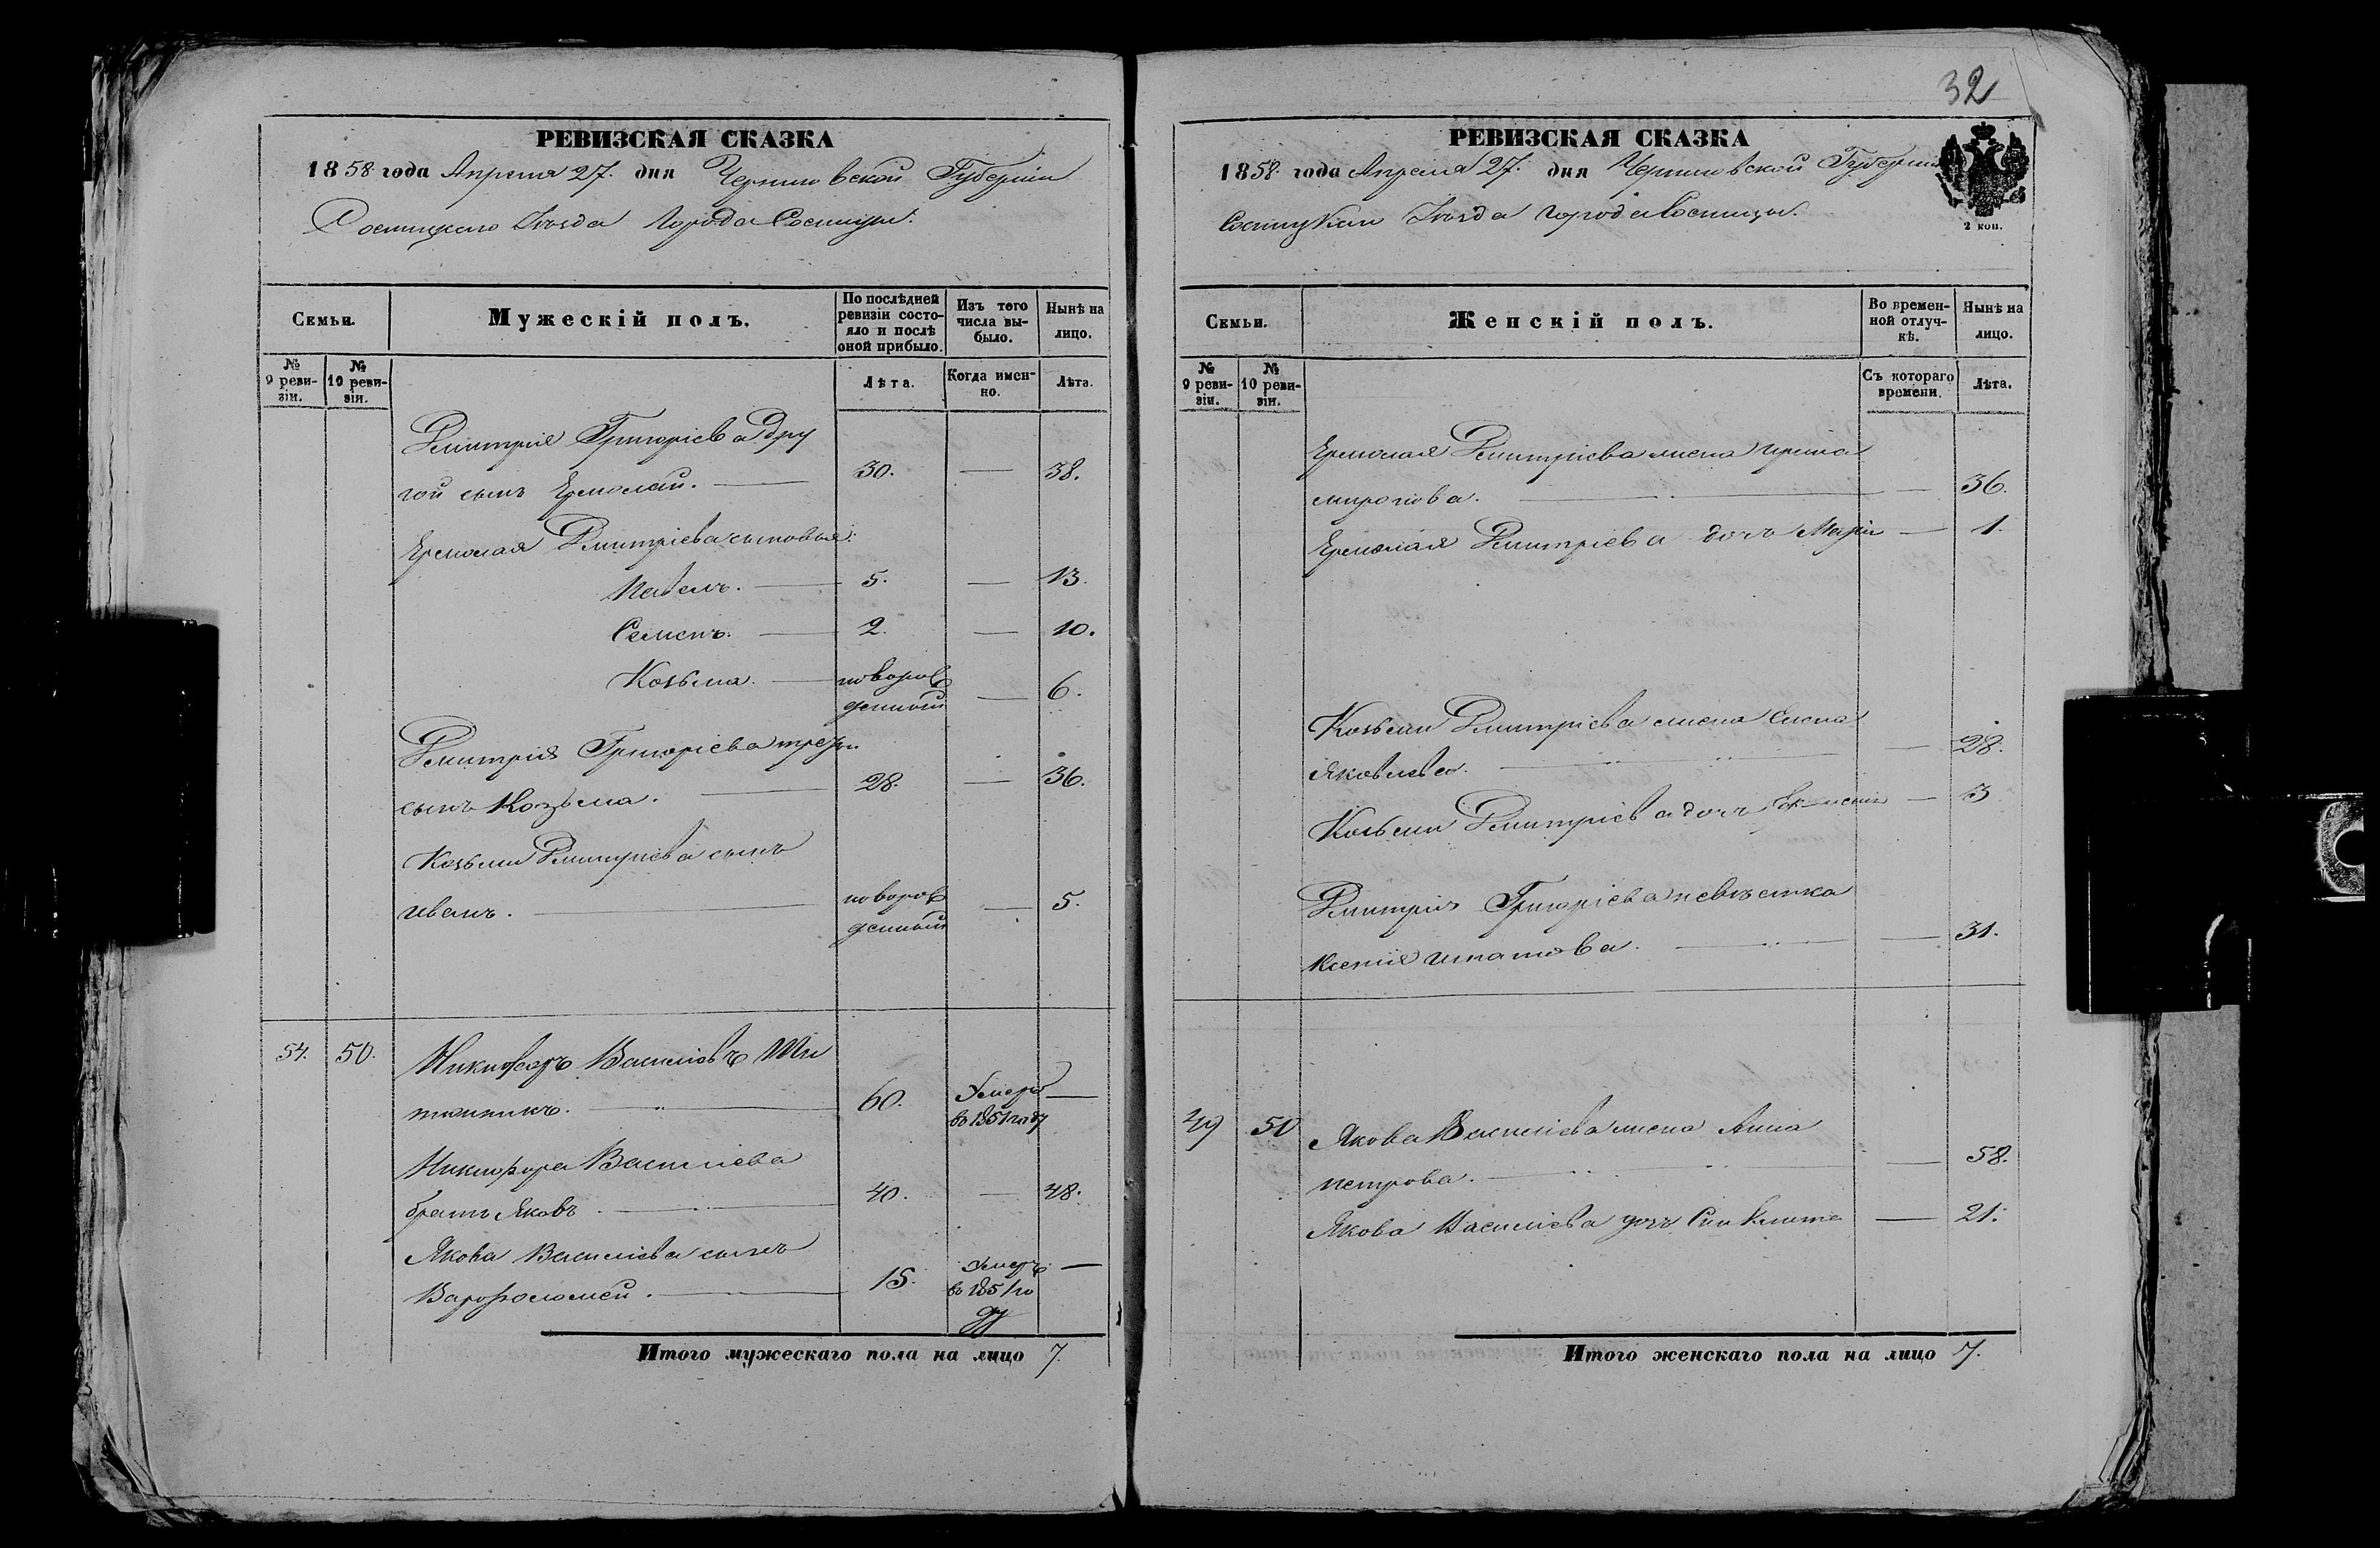 32
РЕВИЗСКАЯ СКАЗКА
1858 года Апреля 27. дня Черниговской Губерніи
Сосницкаго Уѣзда Города Сосницы.
Семьи.
Мужескій полъ.
По послѣдней ревизіи состояло и послѣ оной прибыло.
Изъ того числа выбыло.
Нынѣ на лицо.
№ 9 ревизіи.
№ 10 ревизіи.
Лѣта.
Когда именно.
Лѣта.
Дмитрія Григоріева дру
гой сынъ Ермолай. 30. — 38.
Ермолая Дмитріева сыновья:
Павелъ. 5. — 13.
Семенъ. 2. — 10.
Козьма. новорож
денный — 6.
Дмитрія Григоріева третій
сынъ Козьма. 28. — 36.
Козьми Дмитріева сынъ
Иванъ. новорож
денный — 5.
54. 50. Никифоръ Василіевъ
60. Умеръ —
въ 1851 году
Никифора Василіева
братъ Яковъ. 40. — 48.
Якова Василіева сынъ
Варфоломей. 15. Умеръ —
въ 1851 го
ду
Итого мужескаго пола на лицо 7.
РЕВИЗСКАЯ СКАЗКА
1858. года Апреля 27. дня Черниговской Губерніи
Сосницкаго Уѣзда города Сосницы.
2 коп.
Семьи.
Женскій полъ.
Во временной отлучкѣ.
Нынѣ на лицо.
№ 9 ревизіи.
№ 10 ревизіи.
Съ котораго времени.
Лѣта.
Ермолая Дмитріева жена Ирина
Миронова. — 36.
Ермолая Дмитріева дочь Марія — 1.
Козьми Дмитріева жена Елена
Яковлева. — 28.
Козьми Дмитріева дочь — 3
Дмитрія Григоріева невѣстка
Ксенія Игнатова. — 31.
49 50 Якова Василіева жена Анна
Петрова. — 58.
Якова Василіева дочь — 21.
Итого женскаго пола на лицо 7.